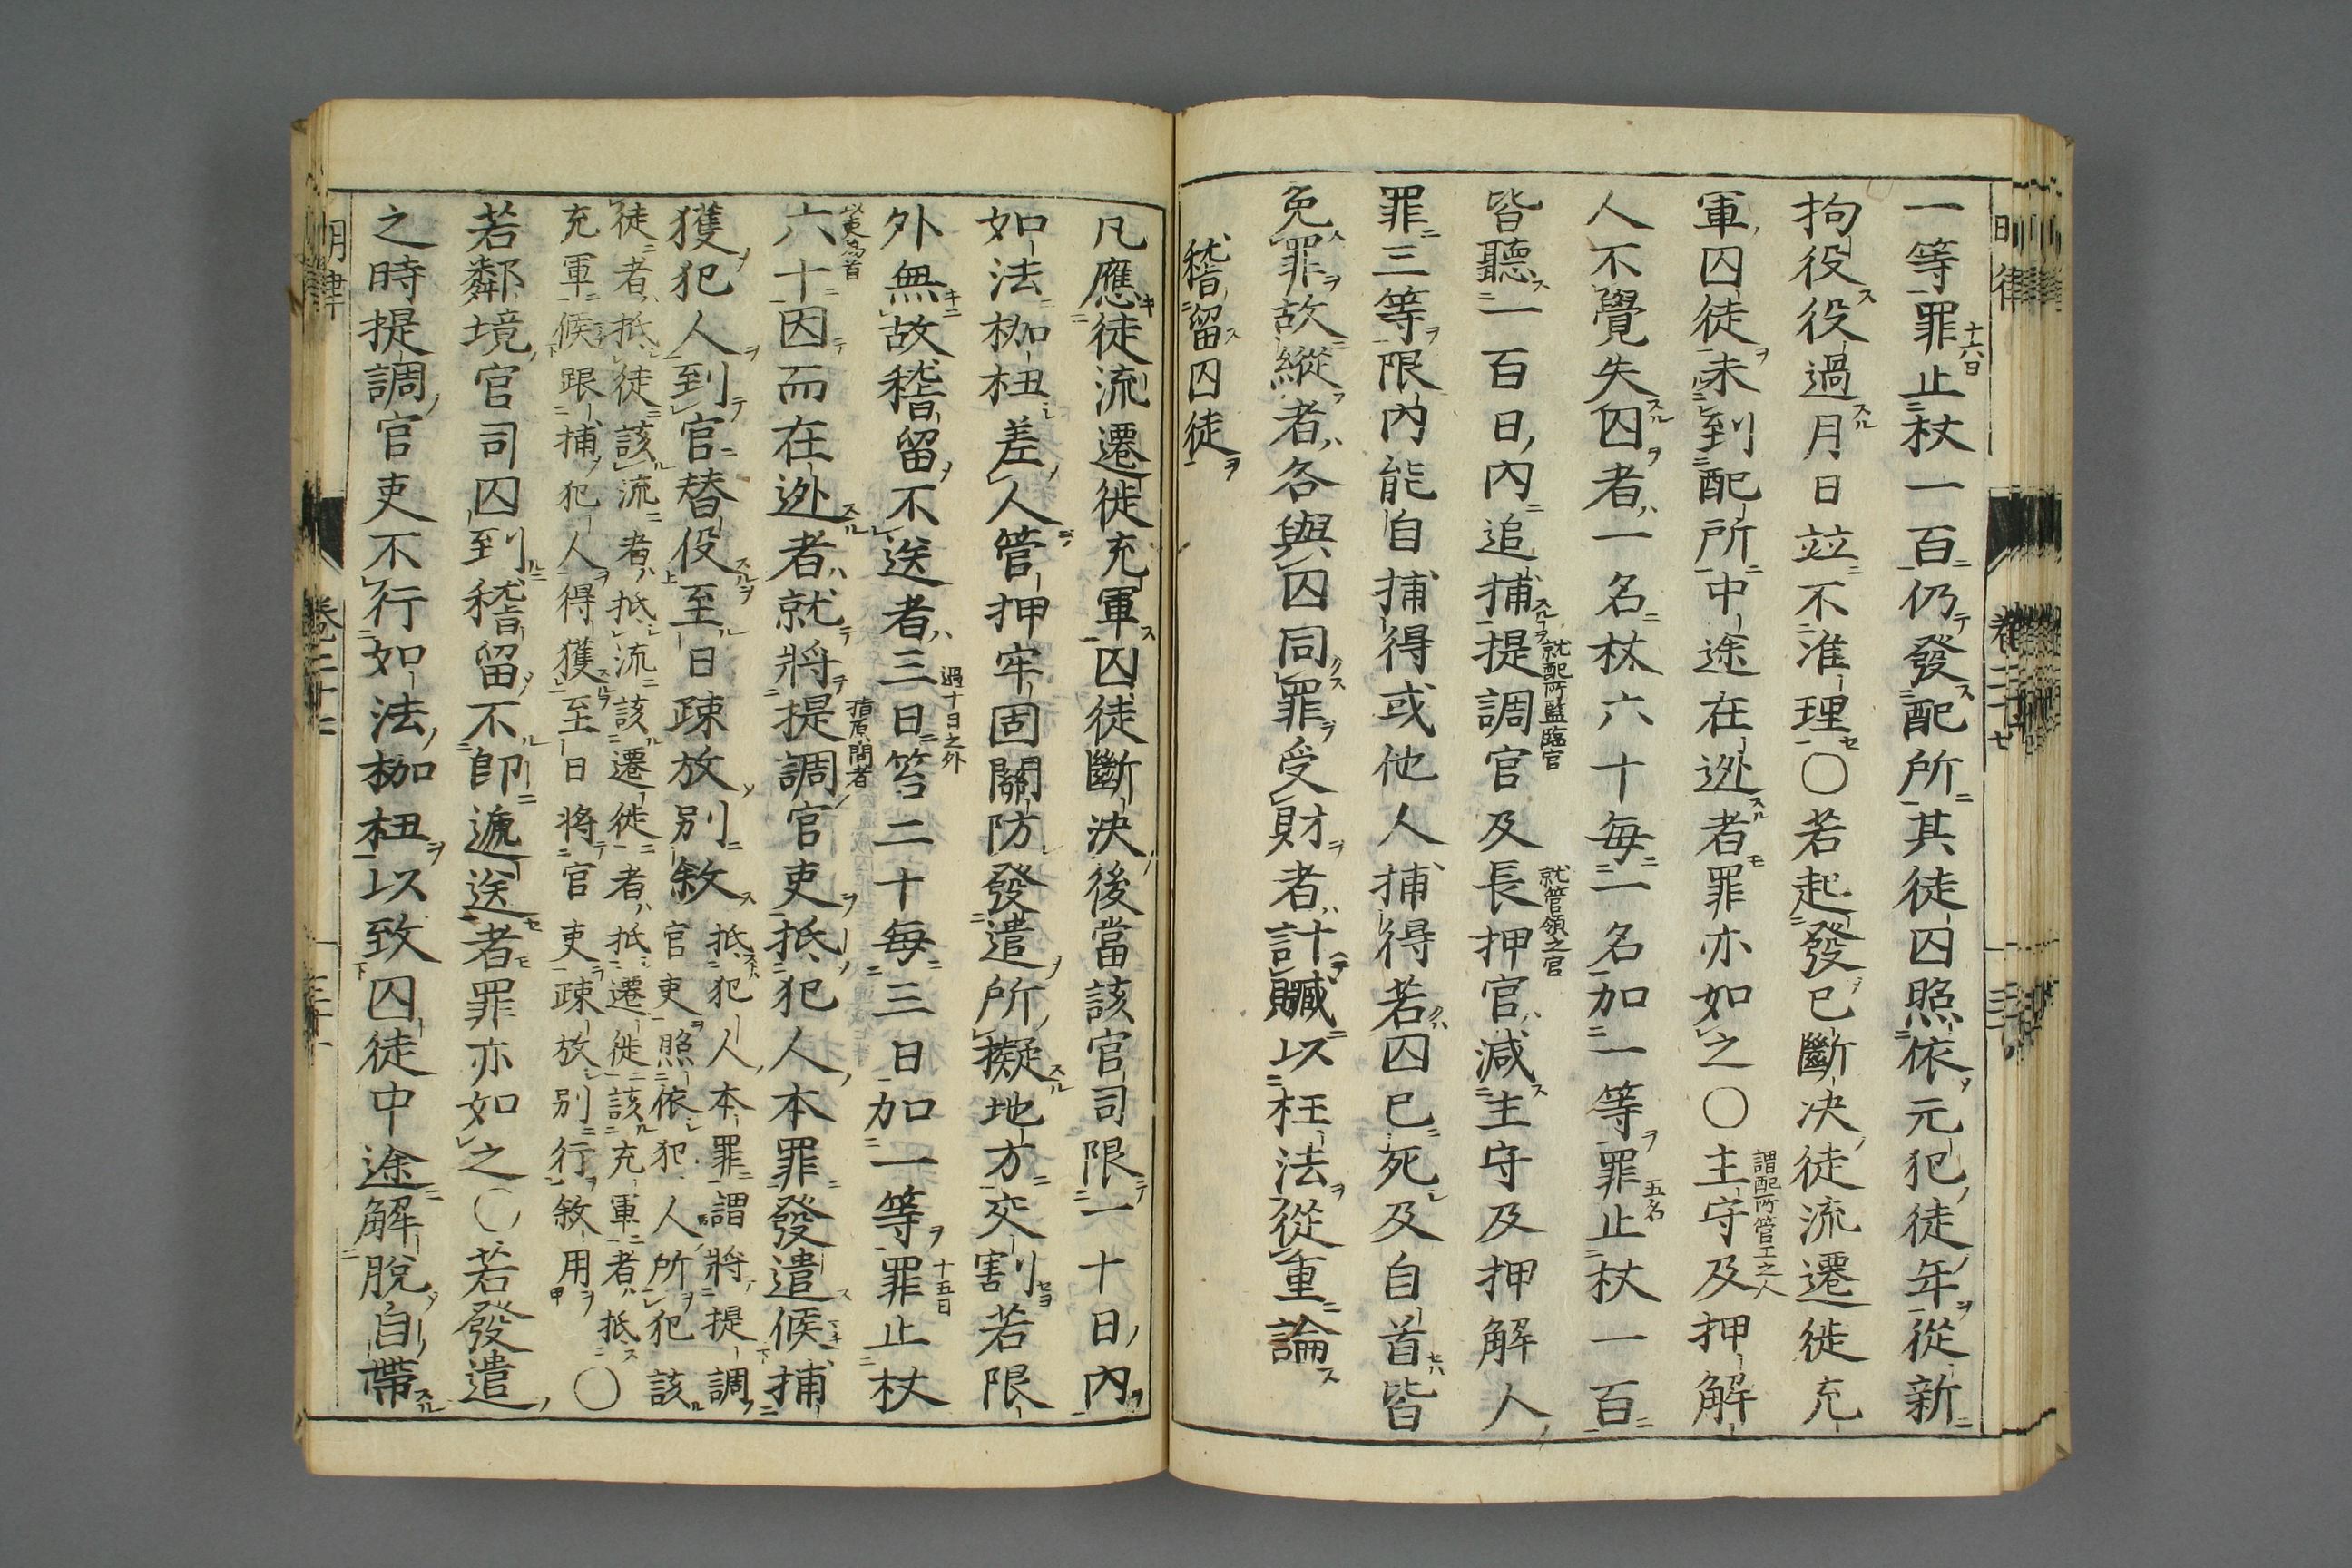 一等罪止杖一百仍發配所其徒囚照依元犯徒年從新
十六日
拘役役過月日竝不准理〇若起發已斷決徒流遷徙充
軍囚徒未到配所中途在逃者罪亦如之〇主守及押解
謂配所管工之人
人不覺失囚者一名杖六十每一名加一等罪止杖一百
五名
皆聽一百日內追捕提調官及長押官減主守及押解人
就配所監臨官
就管領之官
罪三等限內能自捕得或他人捕得若囚已死及自首皆
免罪故縱者各與囚同罪受財者計贓以枉法從重論
稽留囚徒
凡應徒流遷徙充軍囚徒斷決後當該官司限一十日內
如法枷杻差人管押牢固關防發遣所擬地方交割若限
外無故稽留不送者三日笞二十每三日加一等罪止杖
過十日之外
十五日
六十因而在逃者就將提調官吏抵犯人本罪發遣候捕
以吏為首
指原問者
獲犯人到官替役至日疎放別敘
抵犯人本罪謂將提調
官吏照依犯人所犯該
徒者抵徒該流者抵流該遷徙者抵遷徙該充軍者抵
充軍候跟捕犯人得獲至日將官吏疎放別行敘用〇
若鄰境官司囚到稽留不即遞送者罪亦如之〇若發遣
之時提調官吏不行如法枷杻以致囚徒中途解脫自帶
明律
卷二十七
明律